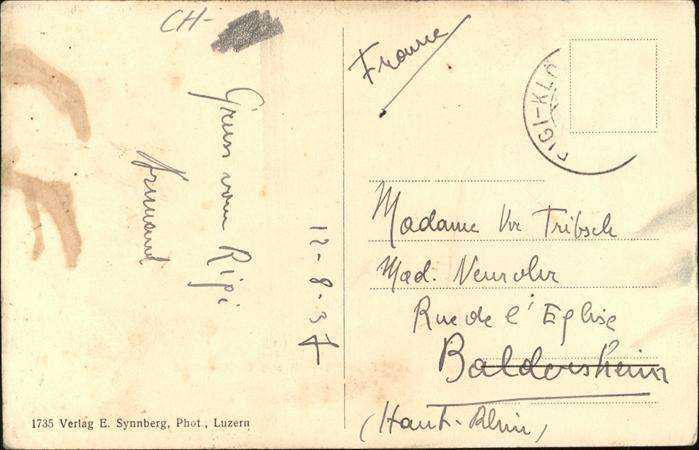 CH-
Gruss vom Rigi
Armand
12-8-37
1735 Verlag E. Synnberg, Phot., Luzern
France
RIGI-KL
Madame Vve Tribsch
Mad. Neurohr
Rue de l'Eglise
Baldersheim
(Haut-Rhin)